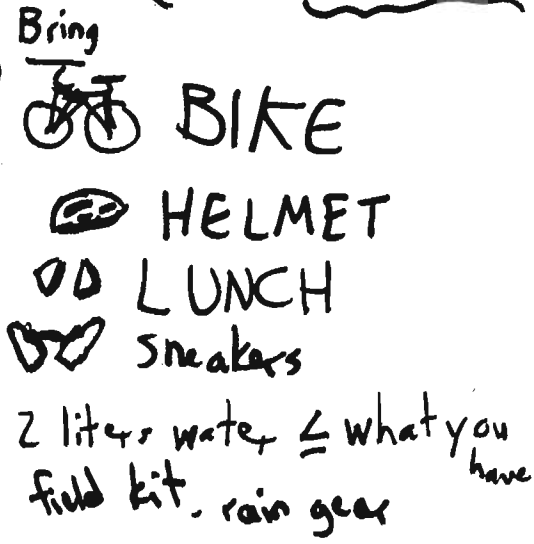 Bring
BIKE
HELMET
LUNCH
Sneakers
2 liters water ≤ what you have
field kit. rain gear